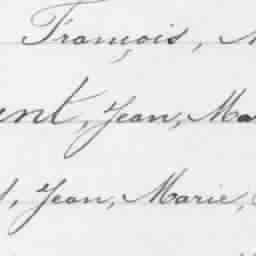 François,
Jean, Ma
Jean, Marie,